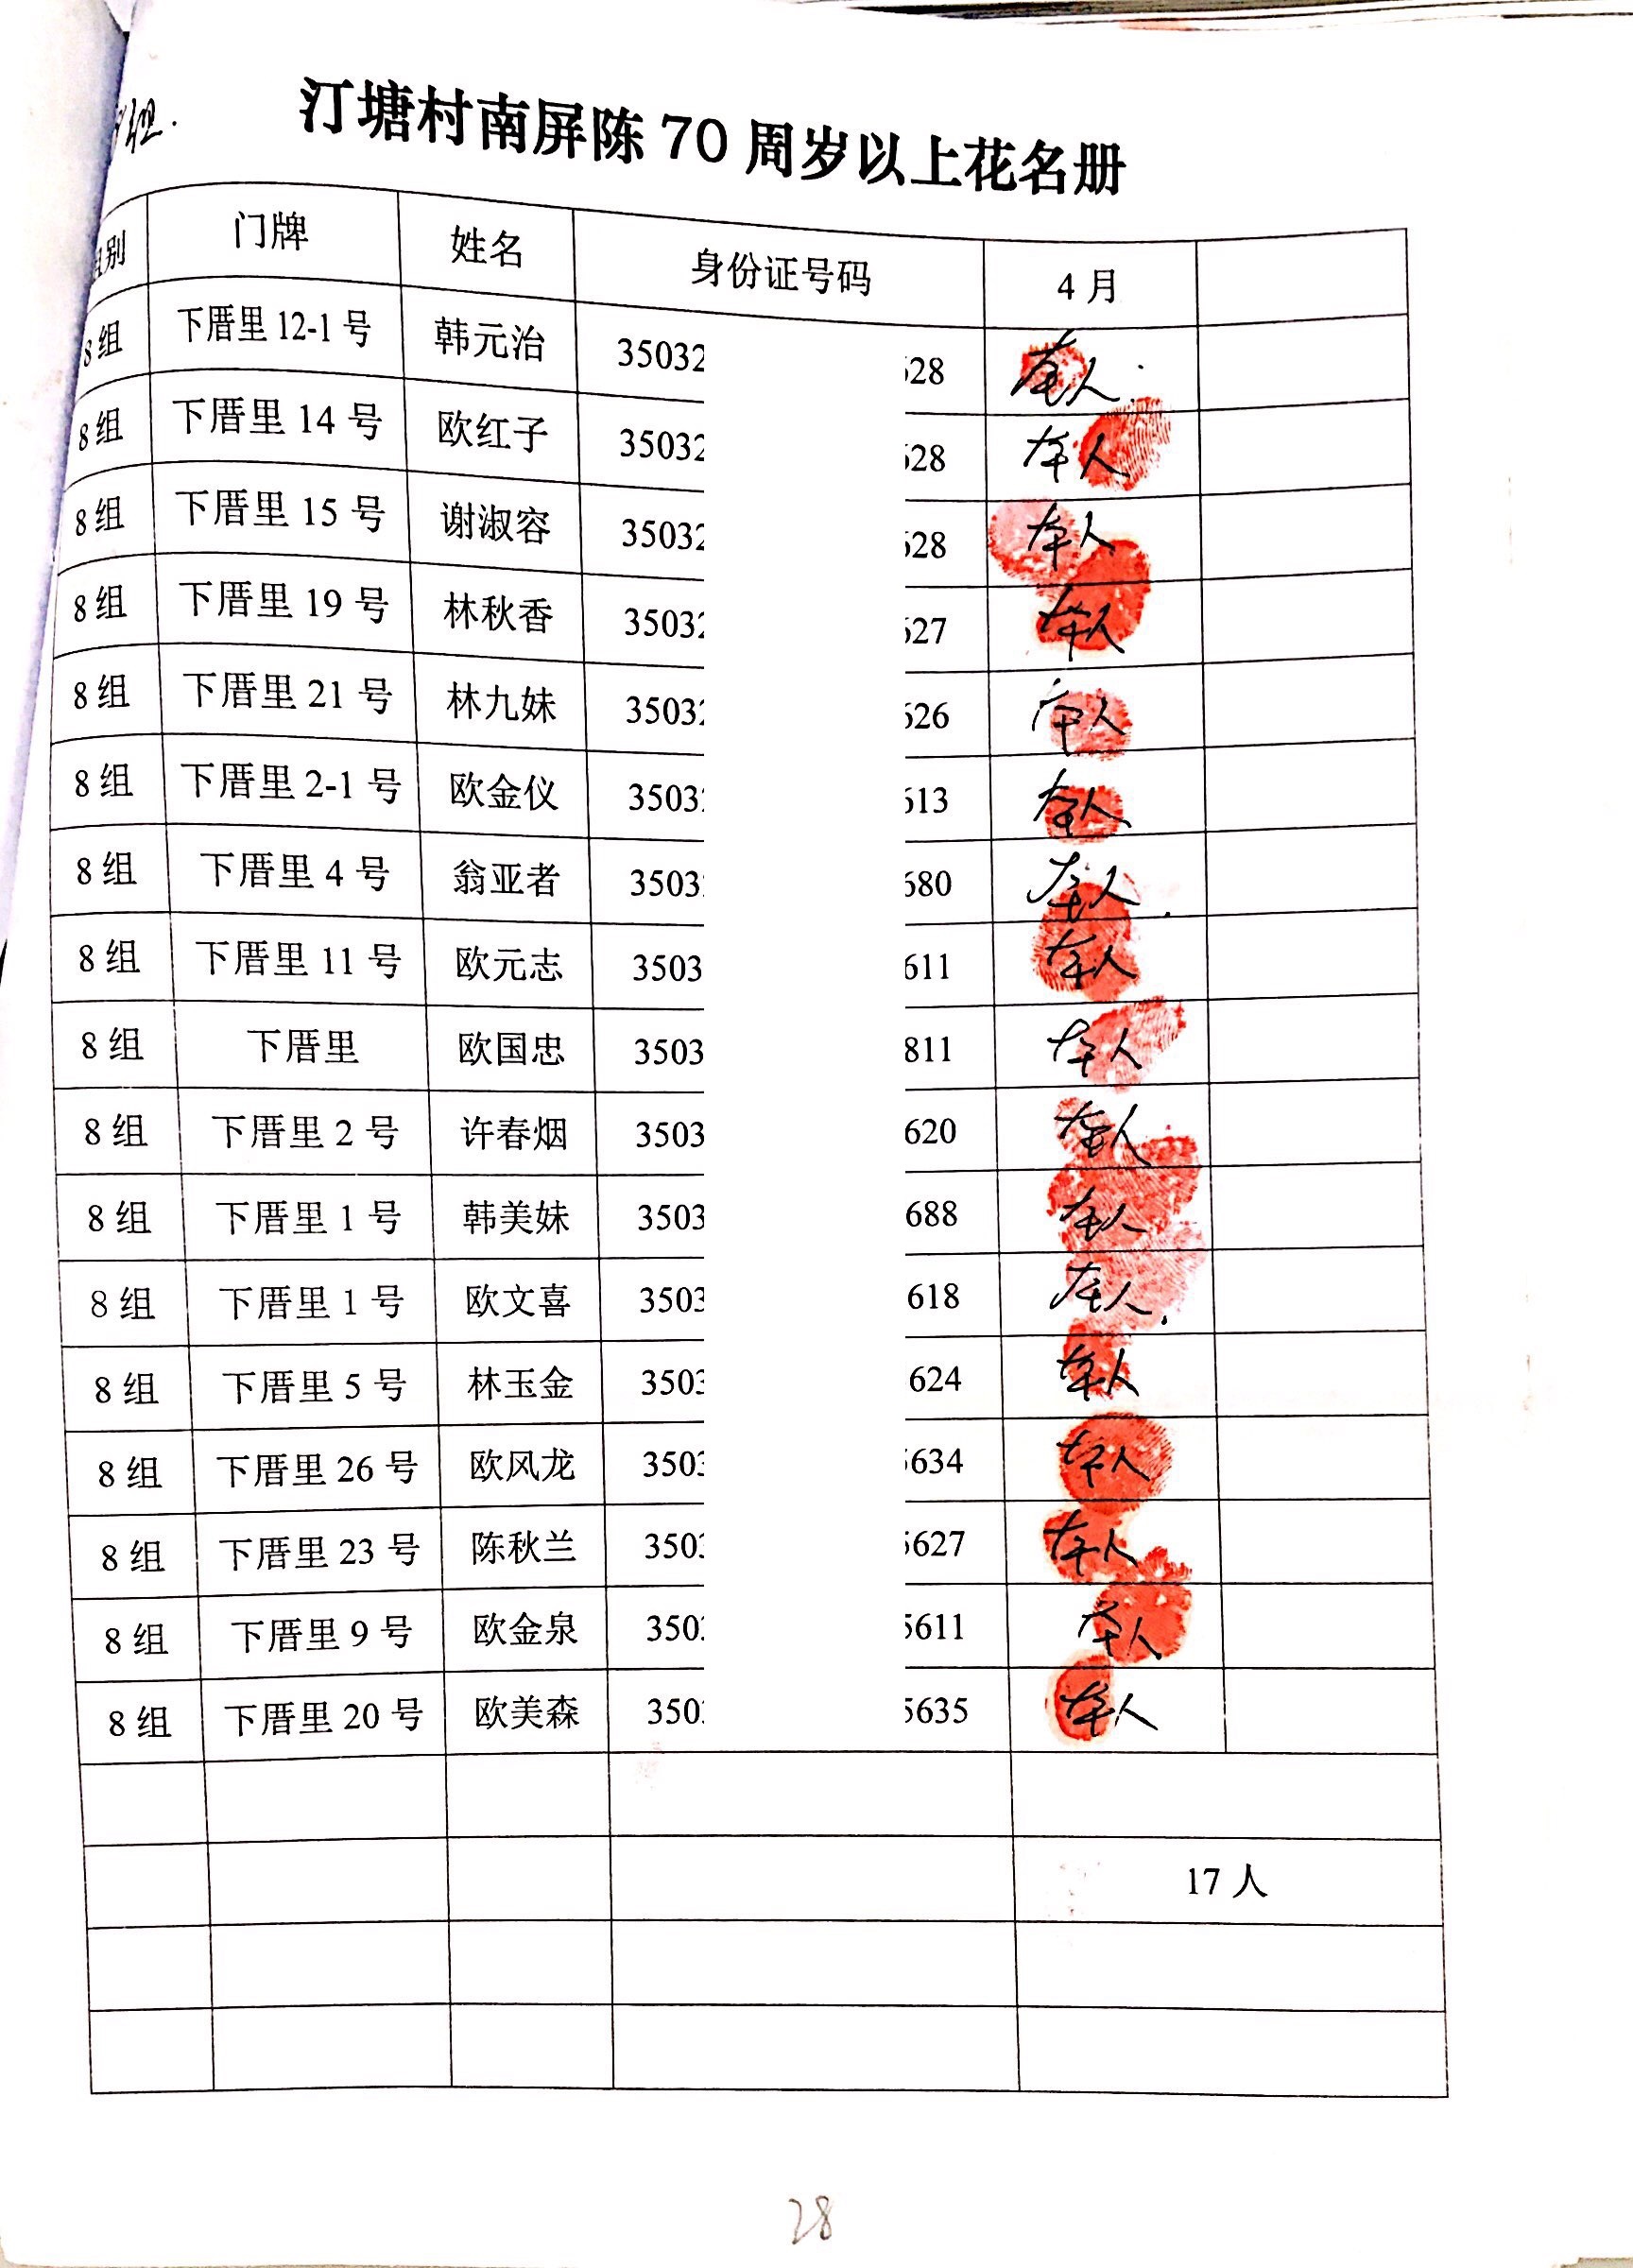 汀塘村南屏陈 70 周岁以上花名册
别 门牌 姓名 身份证号码 4 月
8 组 下厝里 12-1 号 韩元治 35032 628 本人.
8 组 下厝里 14 号 欧红子 35032 628 本人
8 组 下厝里 15 号 谢淑容 35032 628 本人
8 组 下厝里 19 号 林秋香 35032 627 本人
8 组 下厝里 21 号 林九妹 35032 626 本人
8 组 下厝里 2-1 号 欧金仪 35032 613 本人
8 组 下厝里 4 号 翁亚者 3503 680 本人.
8 组 下厝里 11 号 欧元志 3503 611 本人
8 组 下厝里 欧国忠 3503 811 本人
8 组 下厝里 2 号 许春烟 3503 620 本人
8 组 下厝里 1 号 韩美妹 3503 688 本人
8 组 下厝里 1 号 欧文喜 3503 618 本人.
8 组 下厝里 5 号 林玉金 3503 624 本人
8 组 下厝里 26 号 欧风龙 3503 634 本人
8 组 下厝里 23 号 陈秋兰 3503 5627 本人
8 组 下厝里 9 号 欧金泉 3503 5611 本人
8 组 下厝里 20 号 欧美森 3503 5635 本人
17 人
28